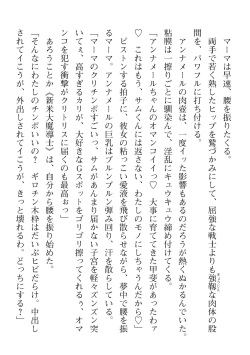 マーマは早速、腰を振りたくる。
　両手で若く熟したヒップを鷲づかみにして、屈強な戦士よりも強靱な肉体の股
間を、パワフルに打ち付ける。
　アンナメールの肉壺は、一度イッた影響もあるのだろうが熱くぬかるんでいた。
粘膜は一擦りごとに馴染んで、淫乱にキュウキュウ締め付けてくる。
「アンナメールちゃんのオマンコイイっ♡　大事に育ててきた甲斐があったわァ
♡　これはもう、サムくんには返さない、わたしのモノにしちゃうんだから♡」
　ピストンする拍子に、彼女の粘っこい愛液を飛び散らせながら、夢中で腰を振
るマーマ。アンナメールの巨乳はブルンブルン弾み回り、汗を散らしている。
「マーマのクリチンポすごいっ、サムがあんまり届かない子宮を軽々ズンズン突
いてくぇ、高すぎるカリが、大好きなGスポットをゴリゴリ擦ってくれるぅ、オマ
ンコを犯す衝撃がクリトリスに届くのも最高おっ」
　あろうことか《新米大魔導士》は、自分から腰を振り始めた。
「そんなにわたしのチンポいいの？　ギロチン木枠はだいぶヒビだらけ。中出し
されてイこうが、外出しされてイこうが、きっと壊れるわ。どっちにする？」